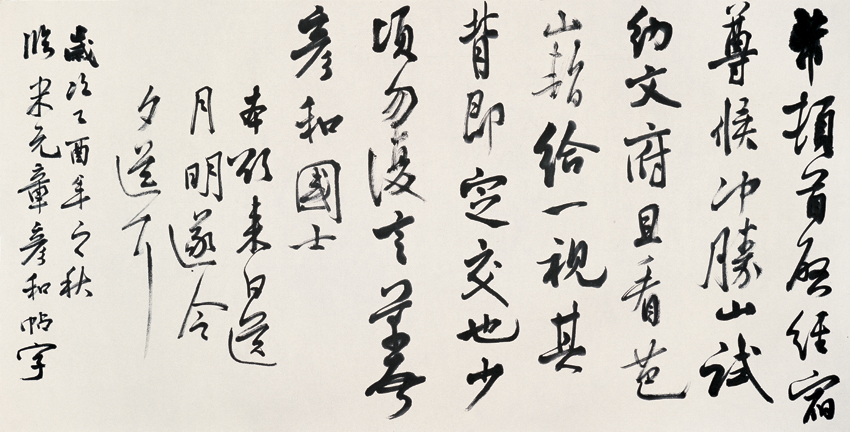 芾頓首啓經宿
尊候冲勝山試
納文府且看芭
山暫給一視其
背即定交也少
頃勿復言芾
彥和國士
本欲来日送
月明遂今
夕送耳
歲次乙酉年之秋
臨米元章彥和帖字